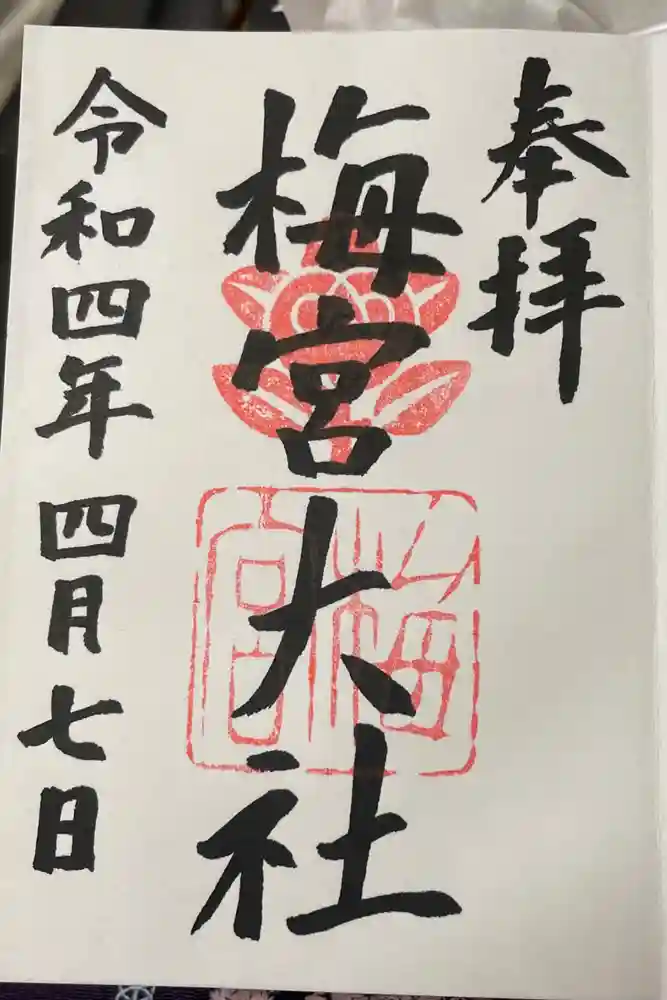 奉拝
梅宮大社
令和四年四月七日